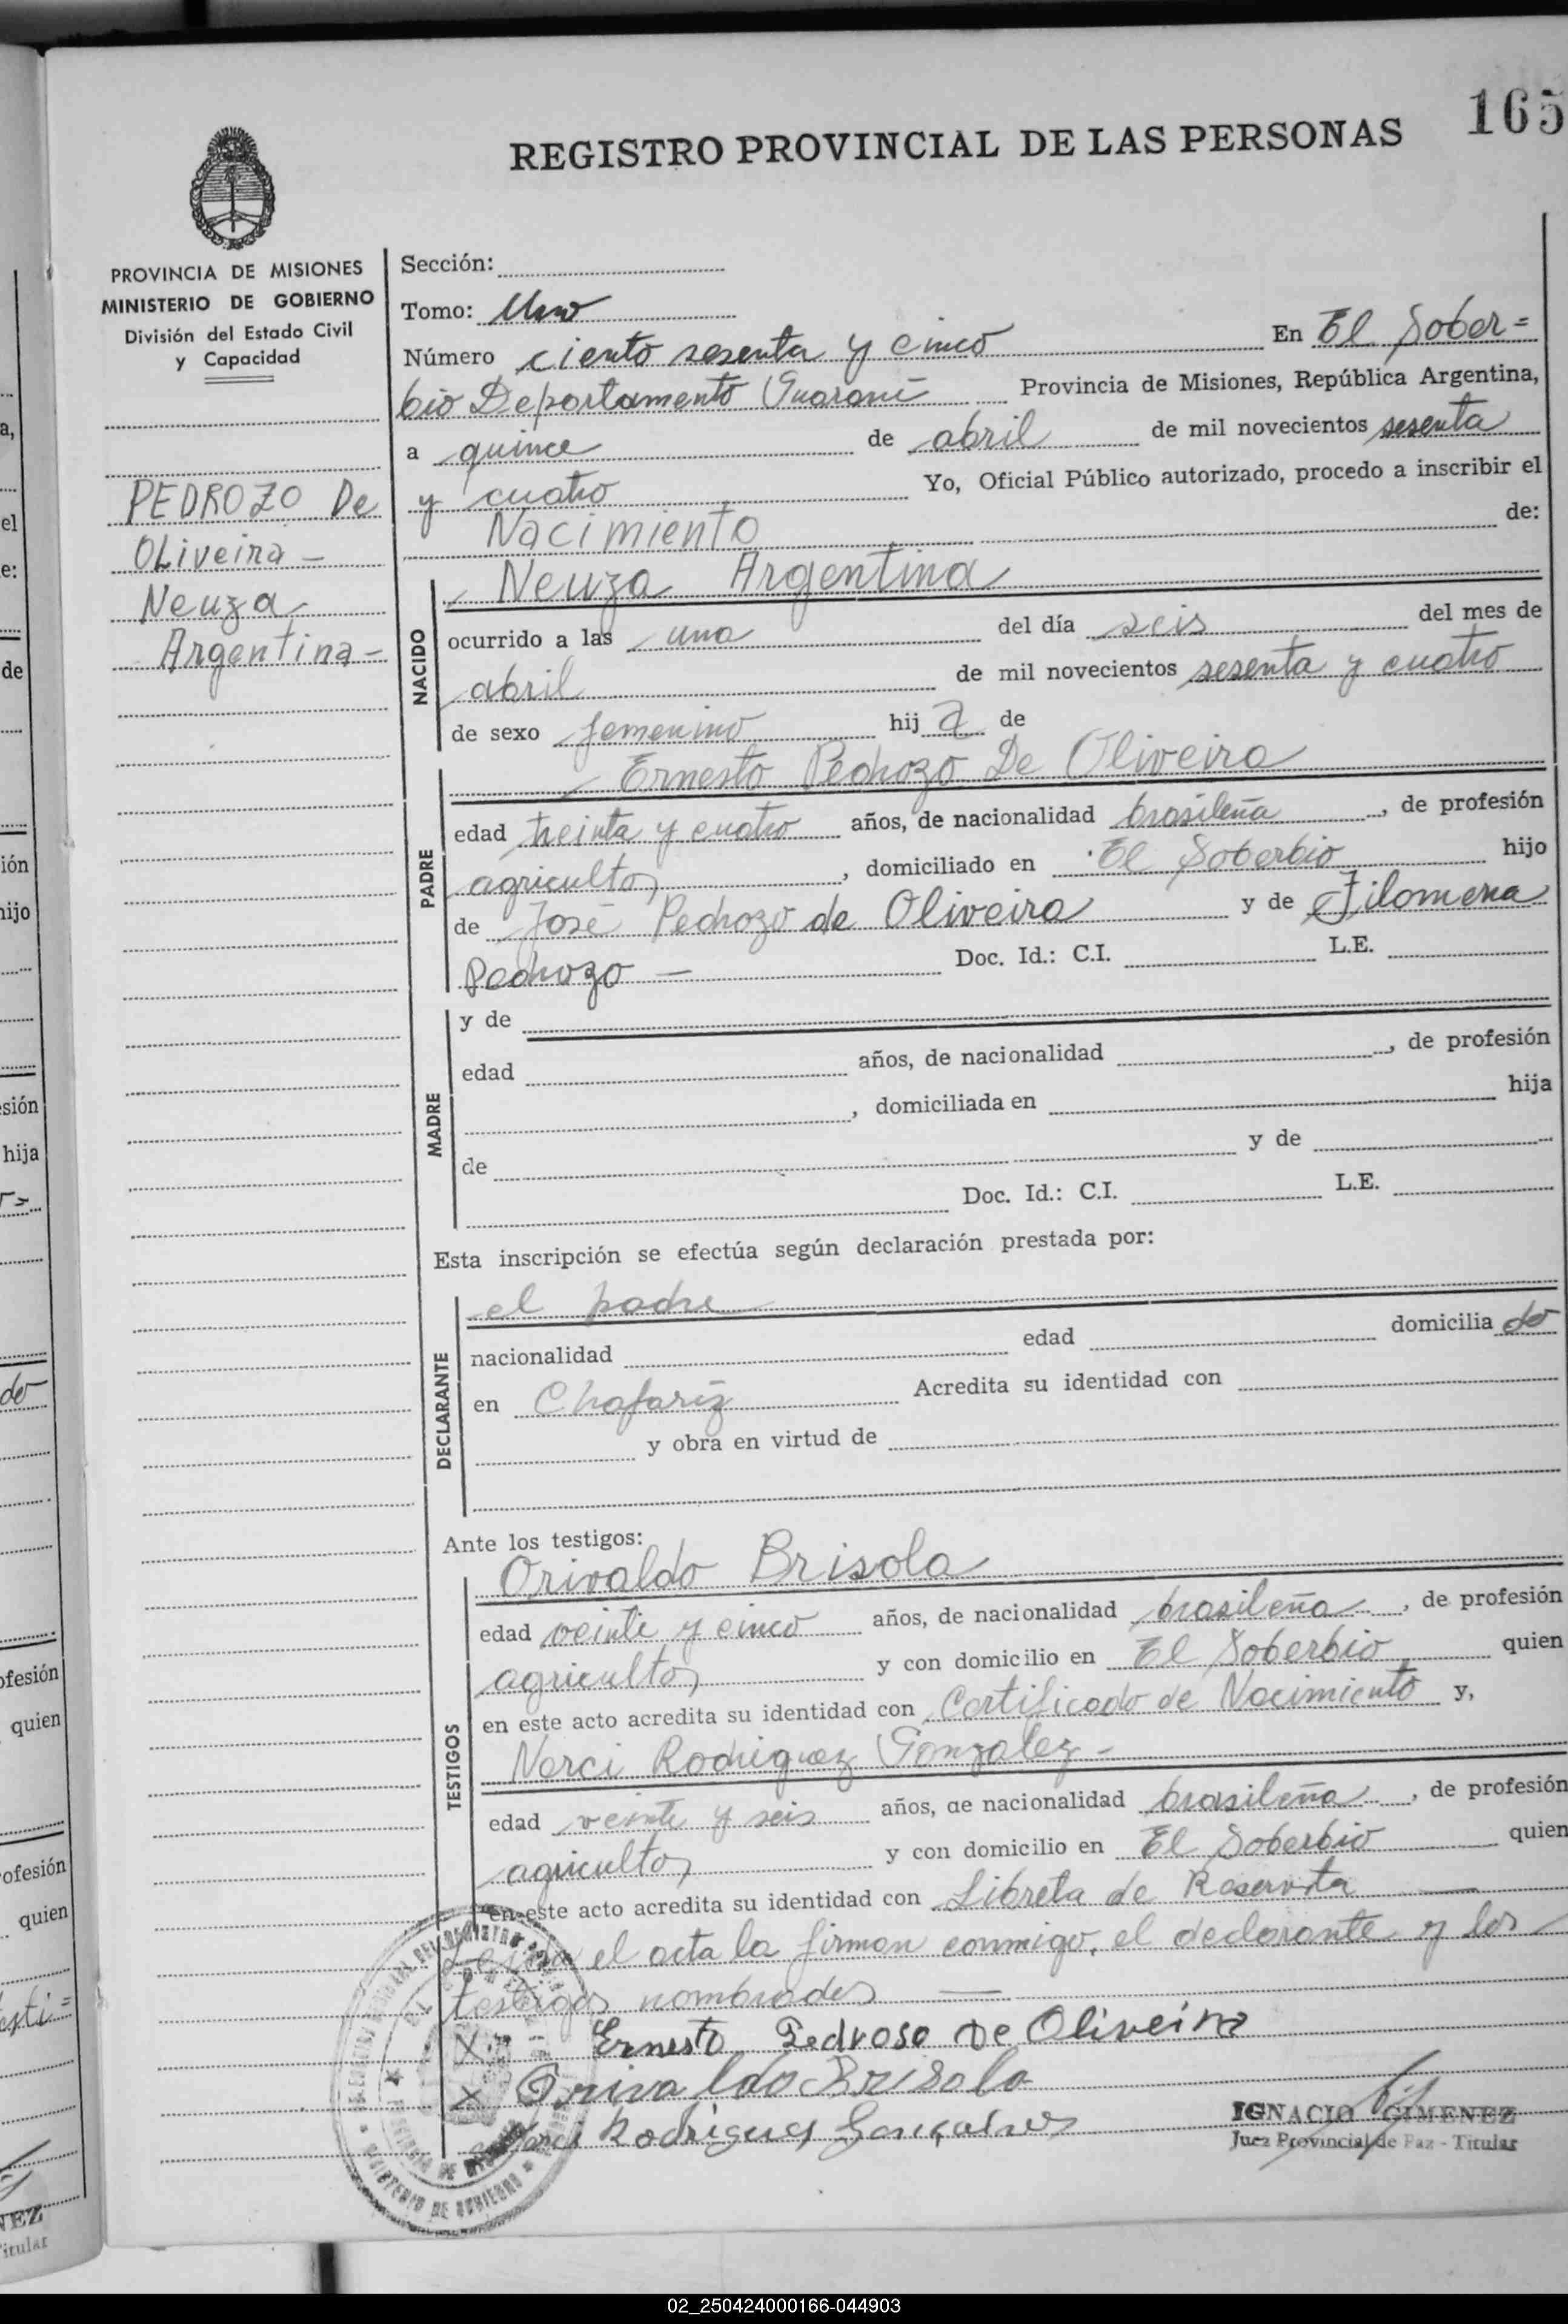 165
REGISTRO PROVINCIAL DE LAS PERSONAS
PROVINCIA DE MISIONES
MINISTERIO DE GOBIERNO
División del Estado Civil
y Capacidad
PEDROZO De
OLiveira -
Neuza
Argentina -
Sección:
Tomo: Uno
Número ciento sesenta y cinco En El Sober=
bio Departamento Guaraní Provincia de Misiones, República Argentina,
a quince de abril de mil novecientos sesenta
y cuatro Yo, Oficial Público autorizado, procedo a inscribir el
Nacimiento de:
NACIDO
Neuza Argentina
ocurrido a las una del día seis del mes de
abril de mil novecientos sesenta y cuatro
de sexo femenino hij a de
PADRE
Ernesto Pedrozo De Oliveira
edad treinta y cuatro años, de nacionalidad brasileña, de profesión
agricultor, domiciliado en El Soberbio hijo
de José Pedrozo de Oliveira y de Filomena
Pedrozo — Doc. Id.: C.I. L.E.
MADRE
y de
edad años, de nacionalidad , de profesión
, domiciliada en hija
de y de
Doc. Id.: C.I. L.E.
Esta inscripción se efectúa según declaración prestada por:
DECLARANTE
el padre
nacionalidad edad domicilia do
en Chafariz Acredita su identidad con
y obra en virtud de
Ante los testigos:
TESTIGOS
Orivaldo Brisola
edad veinte y cinco años, de nacionalidad brasileña, de profesión
agricultor y con domicilio en El Soberbio quien
en este acto acredita su identidad con Certificado de Nacimiento y,
Narci Rodriguez Gonzalez -
edad veinte y seis años, de nacionalidad brasileña, de profesión
agricultor y con domicilio en El Soberbio quien
en este acto acredita su identidad con Libreta de Reservista —
Leída el acta la firman conmigo, el declarante y los
testigos nombrados —
X Ernesto Pedroso De Oliveira
X Orivaldo Brisola
Rodrigues Gonçalves
IGNACIO GIMENEZ
Juez Provincial de Paz - Titular
02_250424000166-044903